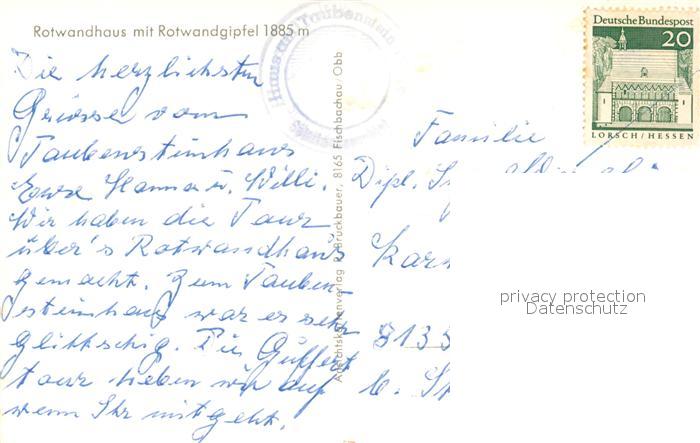 Rotwandhaus mit Rotwandgipfel 1885 m
Die herzlichsten
Grüsse vom
Taubensteinhaus
Eure Hanna u. Willi.
Wir haben die Tour
über's Rotwandhaus
gemacht. Zum Tauben-
steinhaus war es sehr
glitschig. Die Guffert
tour heben wir auf
wenn Ihr mitgeht.
Haus am Taubenstein
Ansichtskartenverlag P. Bruckbauer, 8165 Fischbachau/Obb
Deutsche Bundespost
20
LORSCH/HESSEN
Familie
Dipl.
813
b. St
privacy protection
Datenschutz